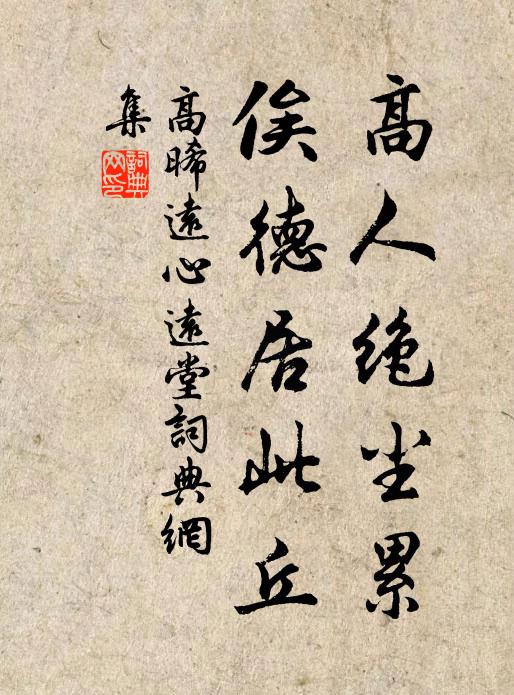 高人绝尘累
俟德居此丘
高晞远心远堂詞典網
集
詞典
网印